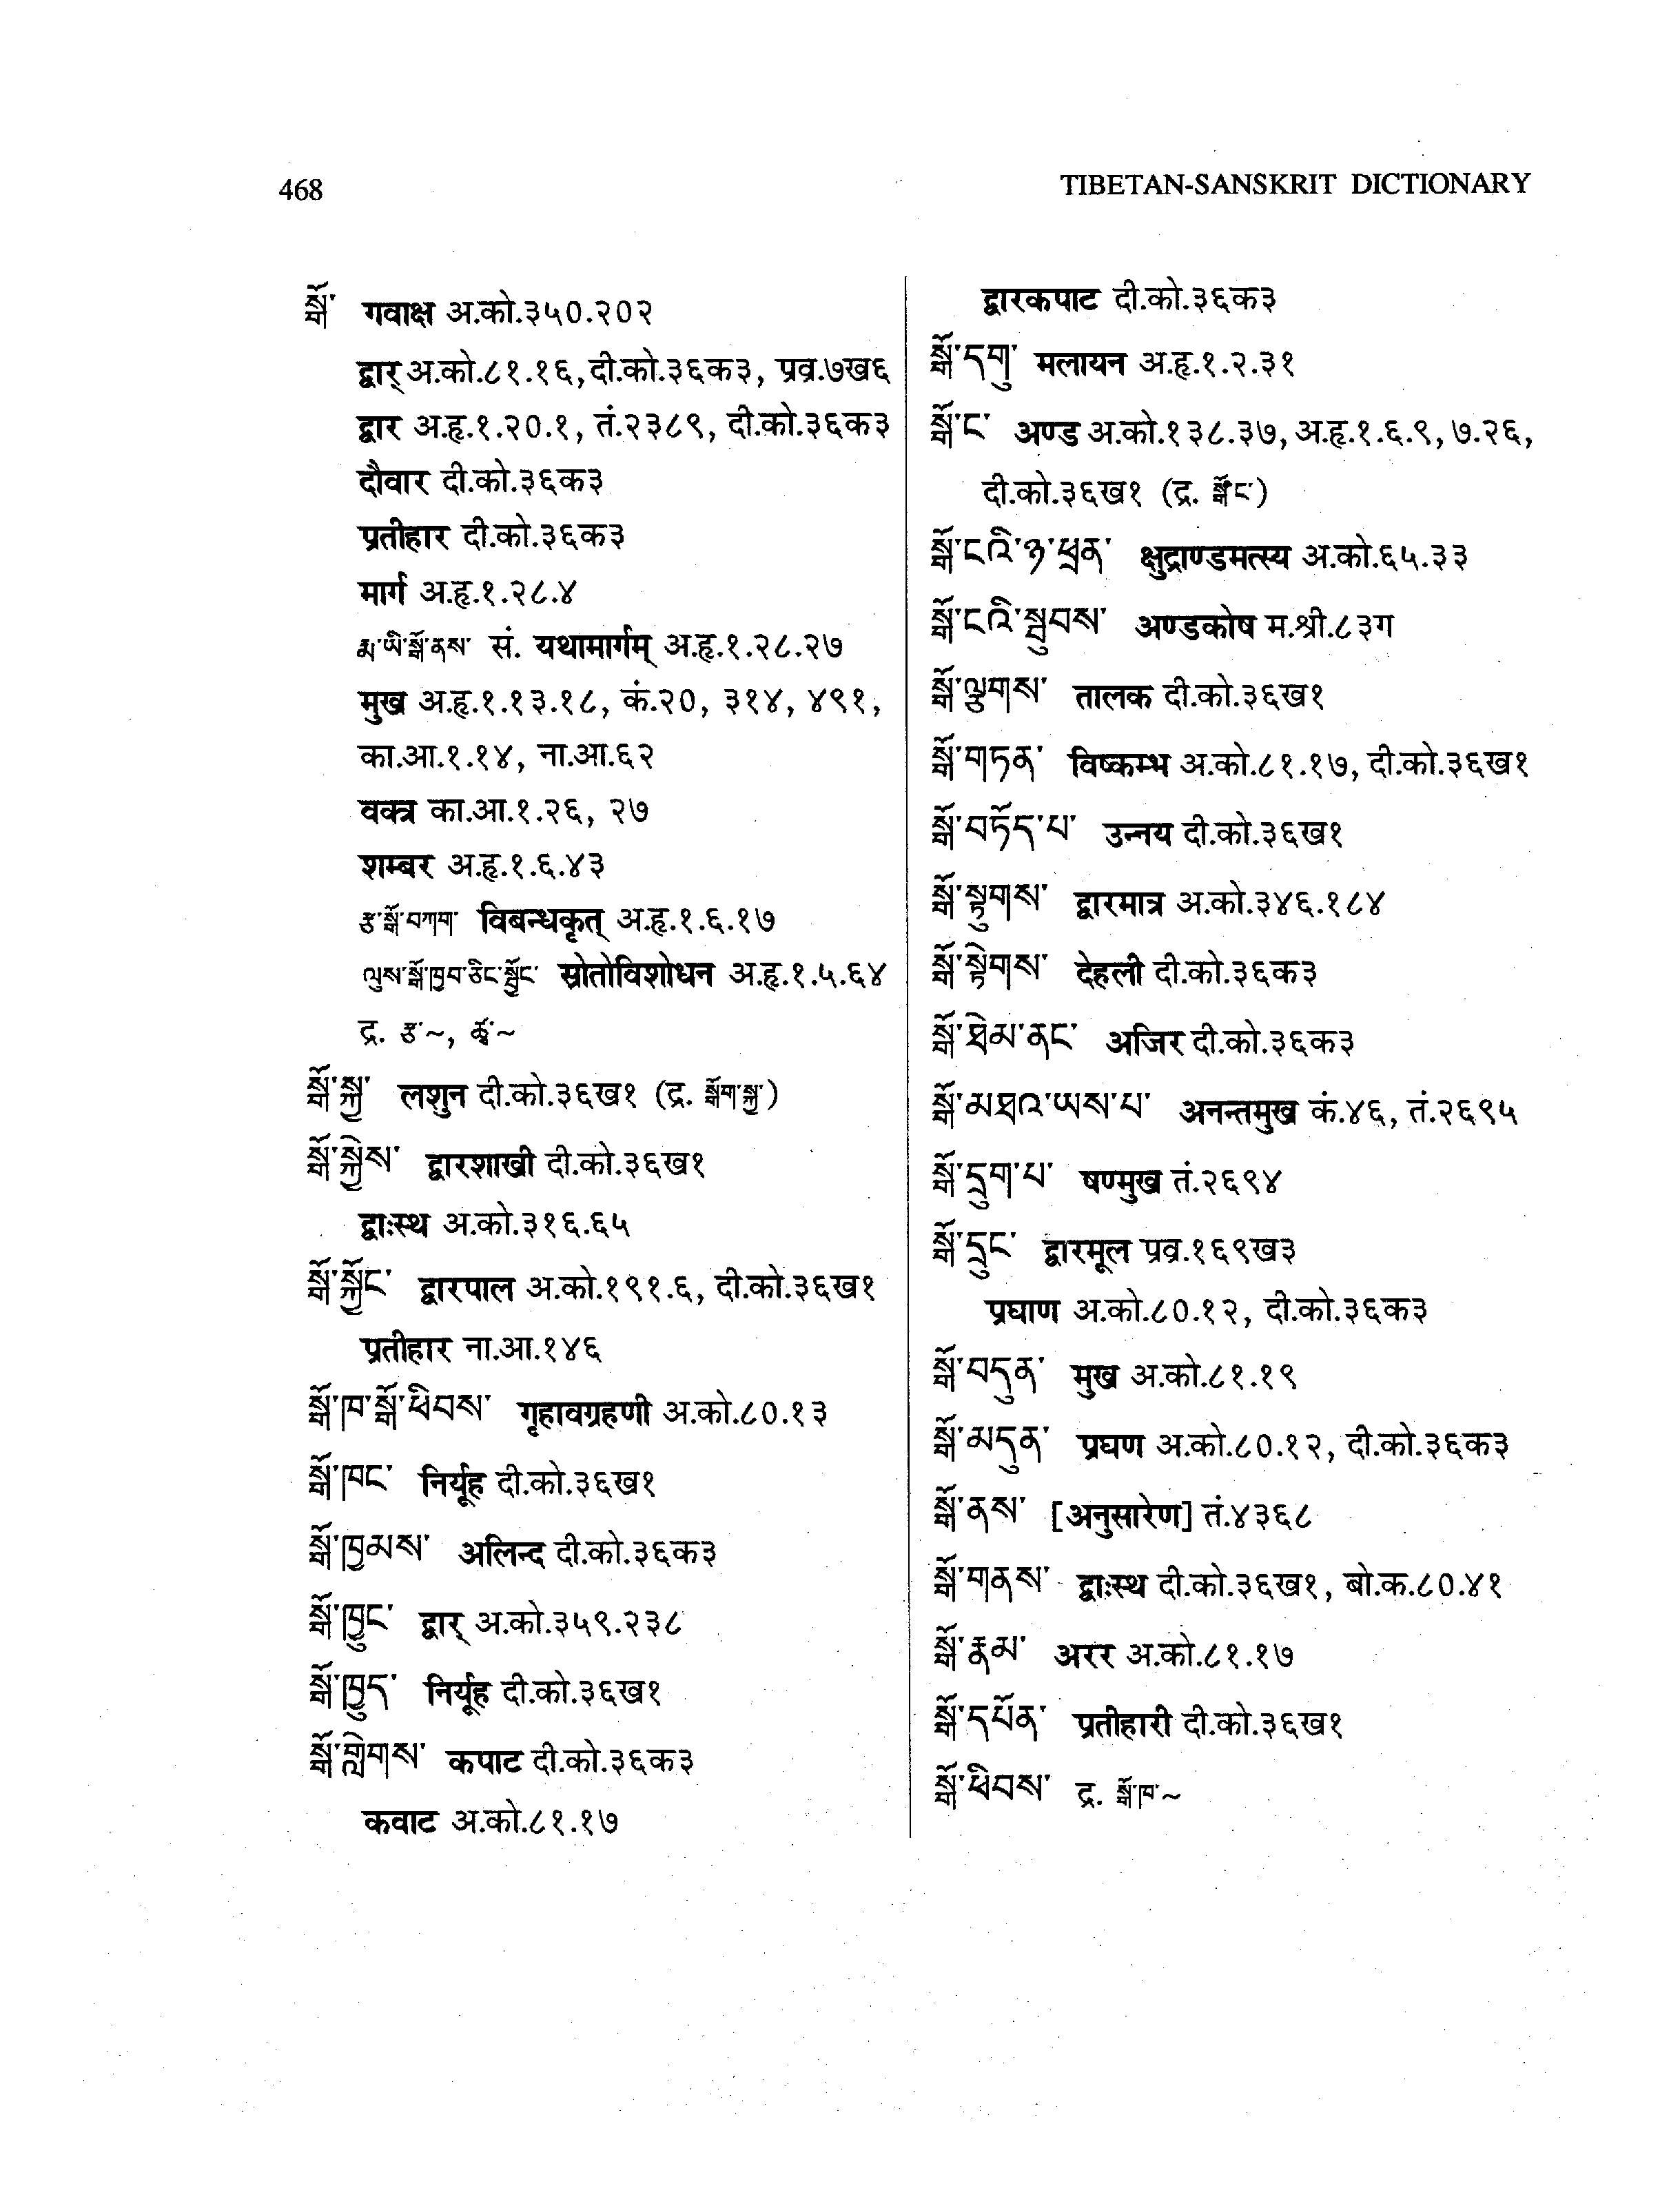 468
TIBETAN-SANSKRIT DICTIONARY
སྒོ་ गवाक्ष अ.को.३५०.२०२
द्वार् अ.को.८१.१६, दी.को.३६क३, प्रव्र.७ख६
द्वार अ.हृ.१.२०.१, तं.२३८९, दी.को.३६क३
दौवार दी.को.३६क३
प्रतीहार दी.को.३६क३
मार्ग अ.हृ.१.२८.४
རྨ་ཡི་སྒོ་ནས་ सं. यथामार्गम् अ.हृ.१.२८.२७
मुख अ.हृ.१.१३.१८, कं.२०, ३१४, ४९१,
का.आ.१.१४, ना.आ.६२
वक्त्र का.आ.१.२६, २७
शम्बर अ.हृ.१.६.४३
རྩ་སྒོ་བཀག་ विबन्धकृत् अ.हृ.१.६.१७
ལུས་སྒོ་ཁྱབ་ཅིང་སྦྱོང་ स्रोतोविशोधन अ.हृ.१.५.६४
द्र. རྩ་~,
སྒོ་སྐྱ་ लशुन दी.को.३६ख१ (द्र. སྒོག་སྐྱ་)
སྒོ་སྐྱེས་ द्वारशाखी दी.को.३६ख१
द्वाःस्थ अ.को.३१६.६५
སྒོ་སྐྱོང་ द्वारपाल अ.को.१९१.६, दी.को.३६ख१
प्रतीहार ना.आ.१४६
སྒོ་ཁ་སྒོ་ཕིབས་ गृहावग्रहणी अ.को.८०.१३
སྒོ་ཁང་ निर्यूह दी.को.३६ख१
སྒོ་ཁྱམས་ अलिन्द दी.को.३६क३
སྒོ་ཁྱུང་ द्वार् अ.को.३५९.२३८
སྒོ་ཁྱུད་ निर्यूह दी.को.३६ख१
སྒོ་གླེགས་ कपाट दी.को.३६क३
कवाट अ.को.८१.१७
द्वारकपाट दी.को.३६क३
སྒོ་དགུ་ मलायन अ.हृ.१.२.३१
སྒོ་ང་ अण्ड अ.को.१३८.३७, अ.हृ.१.६.९, ७.२६,
दी.को.३६ख१ (द्र. སྒོང་)
སྒོ་ངའི་ཉ་ཕྲན་ क्षुद्राण्डमत्स्य अ.को.६५.३३
སྒོ་ངའི་སྦུབས་ अण्डकोष म.श्री.८३ग
སྒོ་ལྕགས་ तालक दी.को.३६ख१
སྒོ་གཏན་ विष्कम्भ अ.को.८१.१७, दी.को.३६ख१
སྒོ་བཏོད་པ་ उन्नय दी.को.३६ख१
སྒོ་སྟུགས་ द्वारमात्र अ.को.३४६.१८४
སྒོ་སྟེགས་ देहली दी.को.३६क३
སྒོ་ཐེམ་ནང་ अजिर दी.को.३६क३
སྒོ་མཐའ་ཡས་པ་ अनन्तमुख कं.४६, तं.२६९५
སྒོ་དྲུག་པ་ षण्मुख तं.२६९४
སྒོ་དྲུང་ द्वारमूल प्रव्र.१६९ख३
प्रघाण अ.को.८०.१२, दी.को.३६क३
སྒོ་བདུན་ मुख अ.को.८१.१९
སྒོ་མདུན་ प्रघण अ.को.८०.१२, दी.को.३६क३
སྒོ་ནས་ [अनुसारेण] तं.४३६८
སྒོ་གནས་ द्वाःस्थ दी.को.३६ख१, बो.क.८०.४१
སྒོ་རྣམ་ अरर अ.को.८१.१७
སྒོ་དཔོན་ प्रतीहारी दी.को.३६ख१
སྒོ་ཕིབས་ द्र. སྒོ་ཁ་~